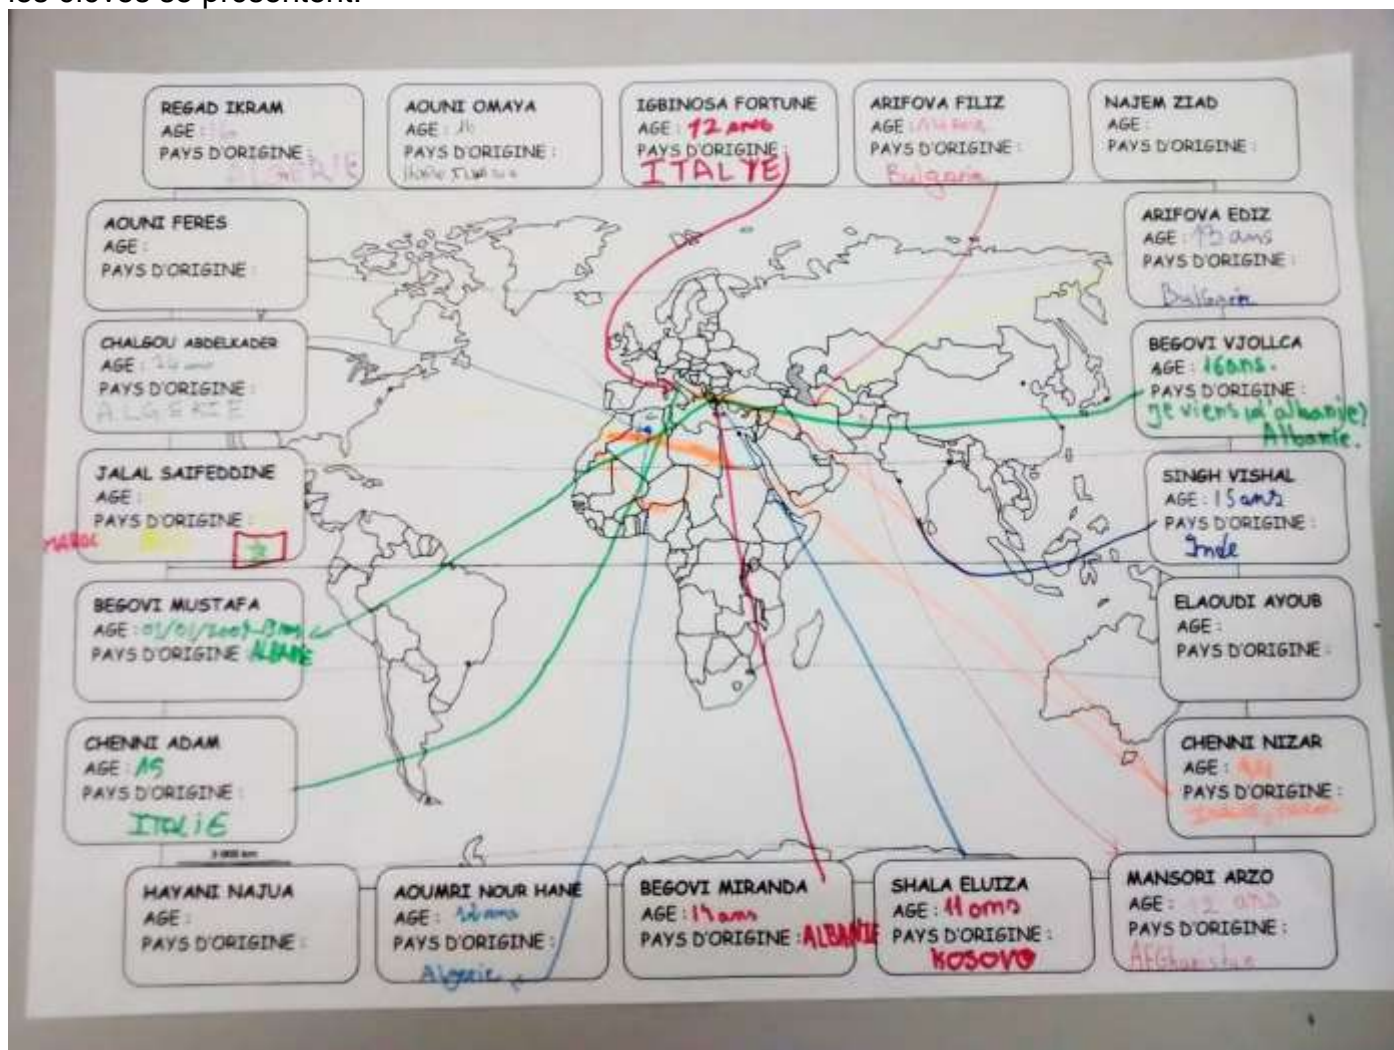 les élèves se présentent.
REGAD IKRAM
AGE :
PAYS D'ORIGINE :
ALGERIE
AOUNI OMAYA
AGE :
PAYS D'ORIGINE :
IGBINOSA FORTUNE
AGE : 12 ans
PAYS D'ORIGINE :
ITALYE
ARIFOVA FILIZ
AGE :
PAYS D'ORIGINE :
Bulgarie
NAJEM ZIAD
AGE :
PAYS D'ORIGINE :
AOUNI FERES
AGE :
PAYS D'ORIGINE :
ARIFOVA EDIZ
AGE : 13 ans
PAYS D'ORIGINE :
Bulgarie
CHALGOU ABDELKADER
AGE : 14 ans
PAYS D'ORIGINE :
ALGERIE
BEGOVI VJOLLCA
AGE : 16ans.
PAYS D'ORIGINE :
je viens (d'albanie)
Albanie.
JALAL SAIFEDDINE
AGE :
PAYS D'ORIGINE :
MAROC
SINGH VISHAL
AGE : 15 ans
PAYS D'ORIGINE :
Inde
BEGOVI MUSTAFA
AGE : 01/01/2007-13ans
PAYS D'ORIGINE : ALBANIE
ELAOUDI AYOUB
AGE :
PAYS D'ORIGINE :
CHENNI ADAM
AGE : 15
PAYS D'ORIGINE :
ITALIE
CHENNI NIZAR
AGE :
PAYS D'ORIGINE :
HAYANI NAJUA
AGE :
PAYS D'ORIGINE :
AOUMRI NOUR HANE
AGE : 12 ans
PAYS D'ORIGINE :
Algerie
BEGOVI MIRANDA
AGE : 14 ans
PAYS D'ORIGINE : ALBANIE
SHALA ELUIZA
AGE : 11 ans
PAYS D'ORIGINE :
KOSOVO
MANSORI ARZO
AGE : 12 ans
PAYS D'ORIGINE :
AFGhanistan